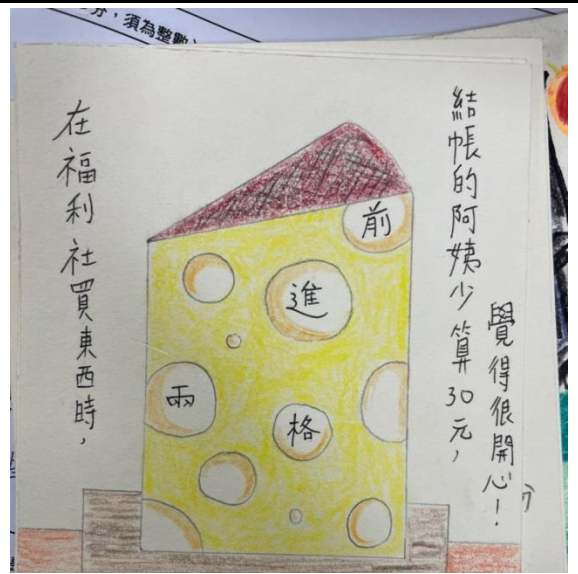 分，須為整數
在福利社買東西時，
結帳的阿姨少算30元，
覺得很開心！
前
進
兩
格